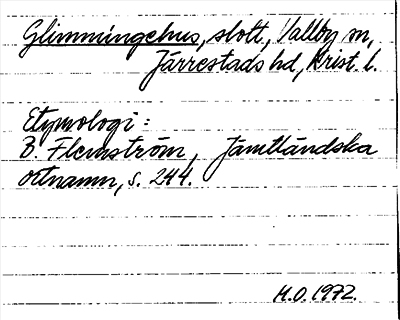 Glimmingehus, slott, Vallby sn,
Järrestads hd, Krist. l.
Etymologi:
B. Flemström, Jämtländska
ortnamn, s. 244.
H.O. 1972.